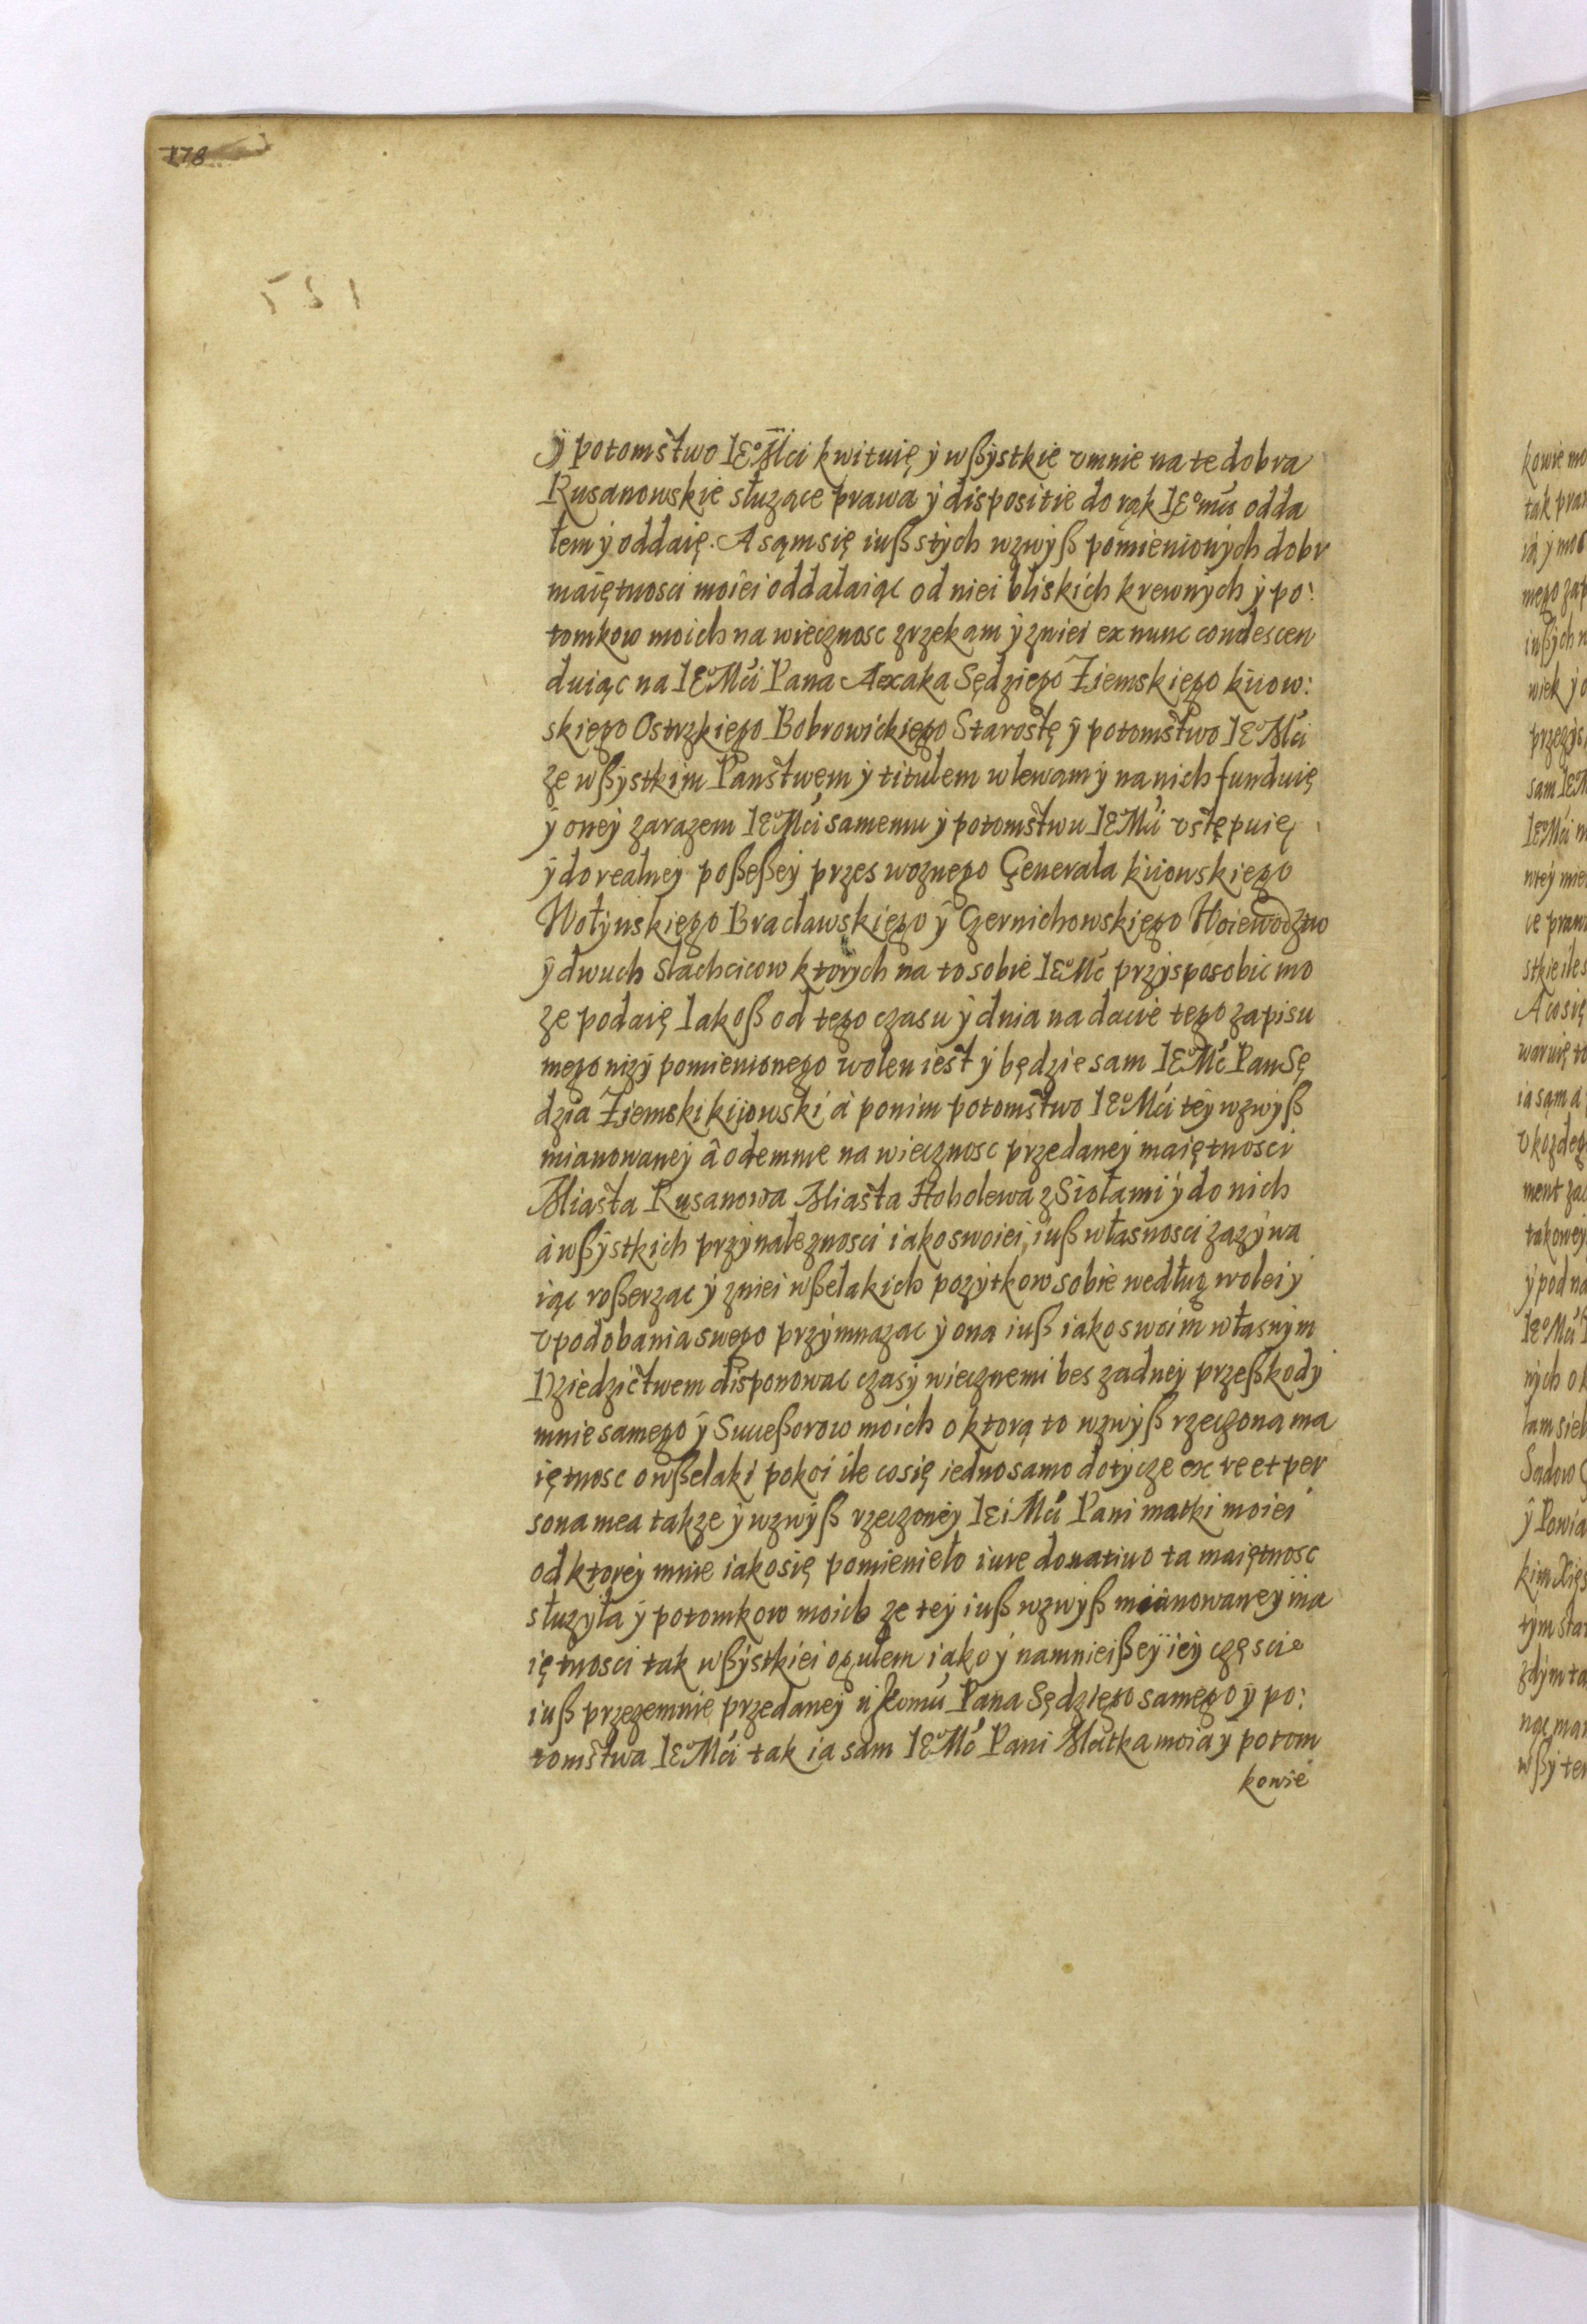 178
ÿ potomstwo IEº Mci kwituię ÿ wßÿstkie vmnie na te dobra
Rusanowskie służące prawa ÿ dispositie do rąk IEº mu odda
łem ÿ oddaię. A sąm się iuß s tÿch wzwÿß pomienionÿch dobr
maiętnosci moiei oddalaiąc od niei bliskich krewnÿch ÿ po:
tomkow moich na wiecznosc zrzekam ÿ zniei ex nunc condescen
duiąc na IEº Mci Pana Axaka Sędziego Ziemskiego kiiow:
skiego Ostrzkiego Bobrowickiego Starostę ÿ potomstwo IEº Mci
ze wßÿstkim Panstwem ÿ titulem wlewam ÿ na nich funduię
ÿ oneÿ zarazem IEº Mci samemu ÿ potomstwu IEº Mci vstępuię
ÿ do realneÿ poßeßeÿ przes woznego Generala kiiowskiego
Wołÿnskiego Bracławskiego ÿ Czernichowskiego Woiewodztw
ÿ dwuch slachcicow ktorÿch na to sobie IEº Mc przÿsposobic mo
ze podaię Iakoß od tego czasu ÿ dnia na dacie tego zapisu
mego nizÿ pomienionego wolen iest ÿ będzie sam IEº Mc Pan Sę
dzia Ziemski kiiowski á po nim potomstwo IEº Mci teÿ wzwÿß
mianowaneÿ â odemnie na wiecznosc przedaneÿ maiętnosci
Miasta Rusanowa Miasta Hoholewa z Siołami ÿ do nich
á wßÿstkich przÿnaleznosci iako swoiei iuß własnosci zazÿwa
iąc roßerzac ÿ zniei wßelakich pozÿtkow sobie według wolei ÿ
vpodobania swego przÿmnazac ÿ ona iuß iako swoim własnÿm
Dziedzictwem disponowac czasÿ wiecznemi bes zadneÿ przeßkodÿ
mnie samego ÿ Succeßorow moich o ktorą to wzwÿß rzeczona ma
iętnosc o wßelaki pokoi ile co się iedno samo dotÿcze ex re et per
sona mea takze ÿ wzwÿß rzeczoneÿ IEi Mci Pani matki moiei
od ktoreÿ mnie iako się pomienieło iure donatiuo ta maiętnosc
służÿła ÿ potomkow moich ze teÿ iuß wzwÿß mianowaneÿ ma
iętnosci tak wßÿstkiei ogulem iako ÿ namnieißeÿ ieÿ częscie
iuß przezemnie przedaneÿ Pana Sędziego samego ÿ po:
tomstwa IEº Mci tak ia sam IEº Mc Pani Matka moia ÿ potom
kowie